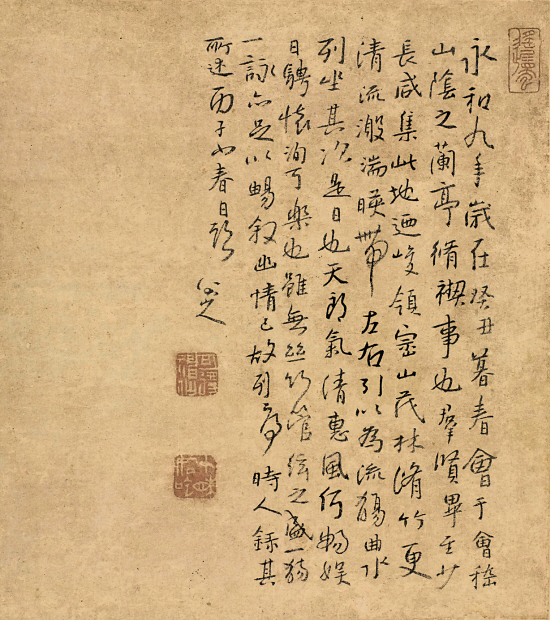 永和九年歲在癸丑暮春會于會稽
山陰之蘭亭脩禊事也羣賢畢至少
長咸集此地迺峻領崇山茂林脩竹更
清流激湍暎帶左右引以為流觴曲水
列坐其次是日也天朗氣清惠風和暢娛
目騁懷洵可樂也雖無絲竹管絃之盛一觴
一詠亦足以暢敘幽情已故列序時人錄其
所述丙子小春日題
八大山人
可得神仙